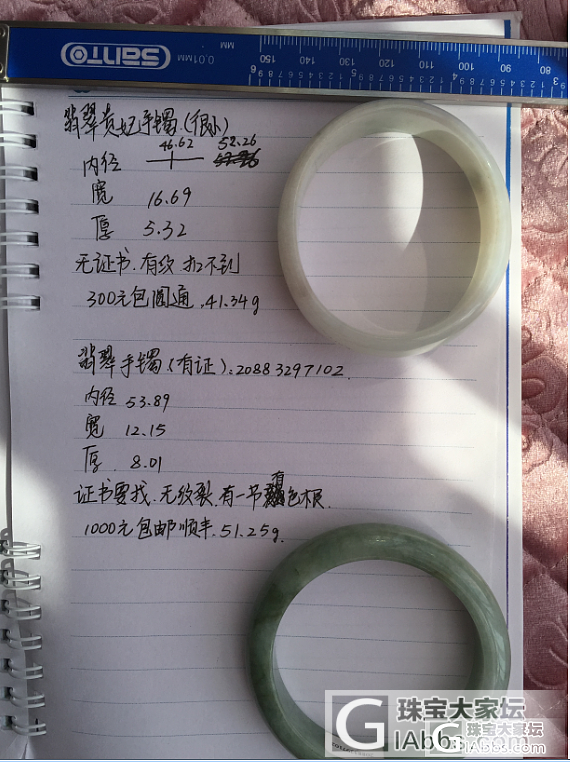 SANTO
0.01MM
MM
150 140 130 120 110 100 90 80
翡翠贵妃手镯(很小)
内径 46.62 52.26
宽 16.69
厚 5.32
无证书.有纹 扣不到
300元包圆通.41.34g
翡翠手镯(有证):20883297102
内径 53.89
宽 12.15
厚 8.01
证书要找.无纹裂.有一节 色根
1000元包邮顺丰.51.25g
G 珠宝大家坛
GIAbBs.com